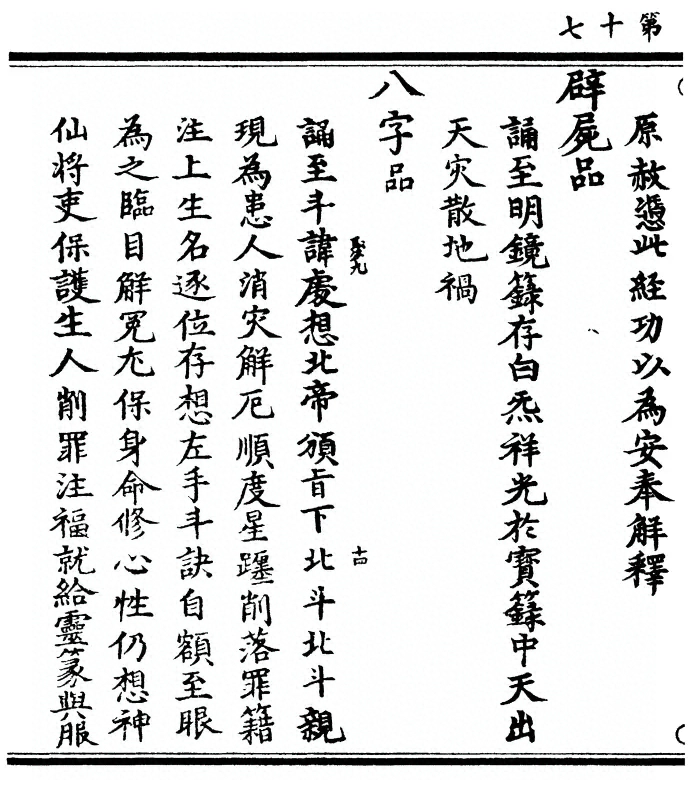 第十七
原赦憑此經功以為安奉解釋
辟屍品
誦至明鏡籙存白炁祥光於寶籙中天出
天灾散地禍
八字品
誦至斗諱處想北帝頒旨下北斗北斗親
十四
現為患人消灾解厄順度星躔削落罪籍
注上生名逐位存想左手斗訣自額至眼
為之臨目解冤尢保身命修心性仍想神
仙將吏保護生人削罪注福就給靈篆與服